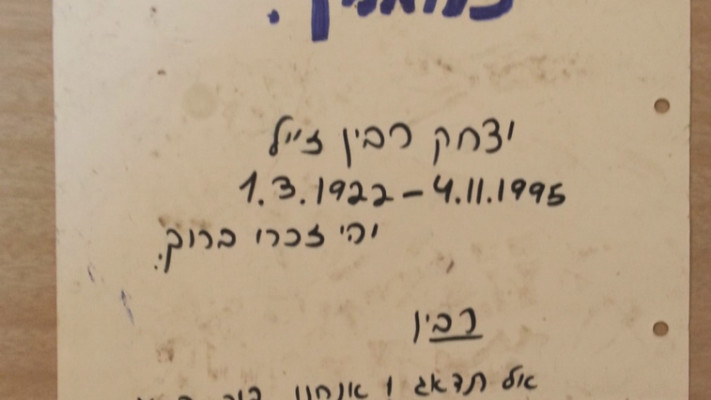 יצחק רבין ז״ל
1.3.1922 – 4.11.1995
יהי זכרו ברוך.
רבין
אל תדאג ! אנחנו